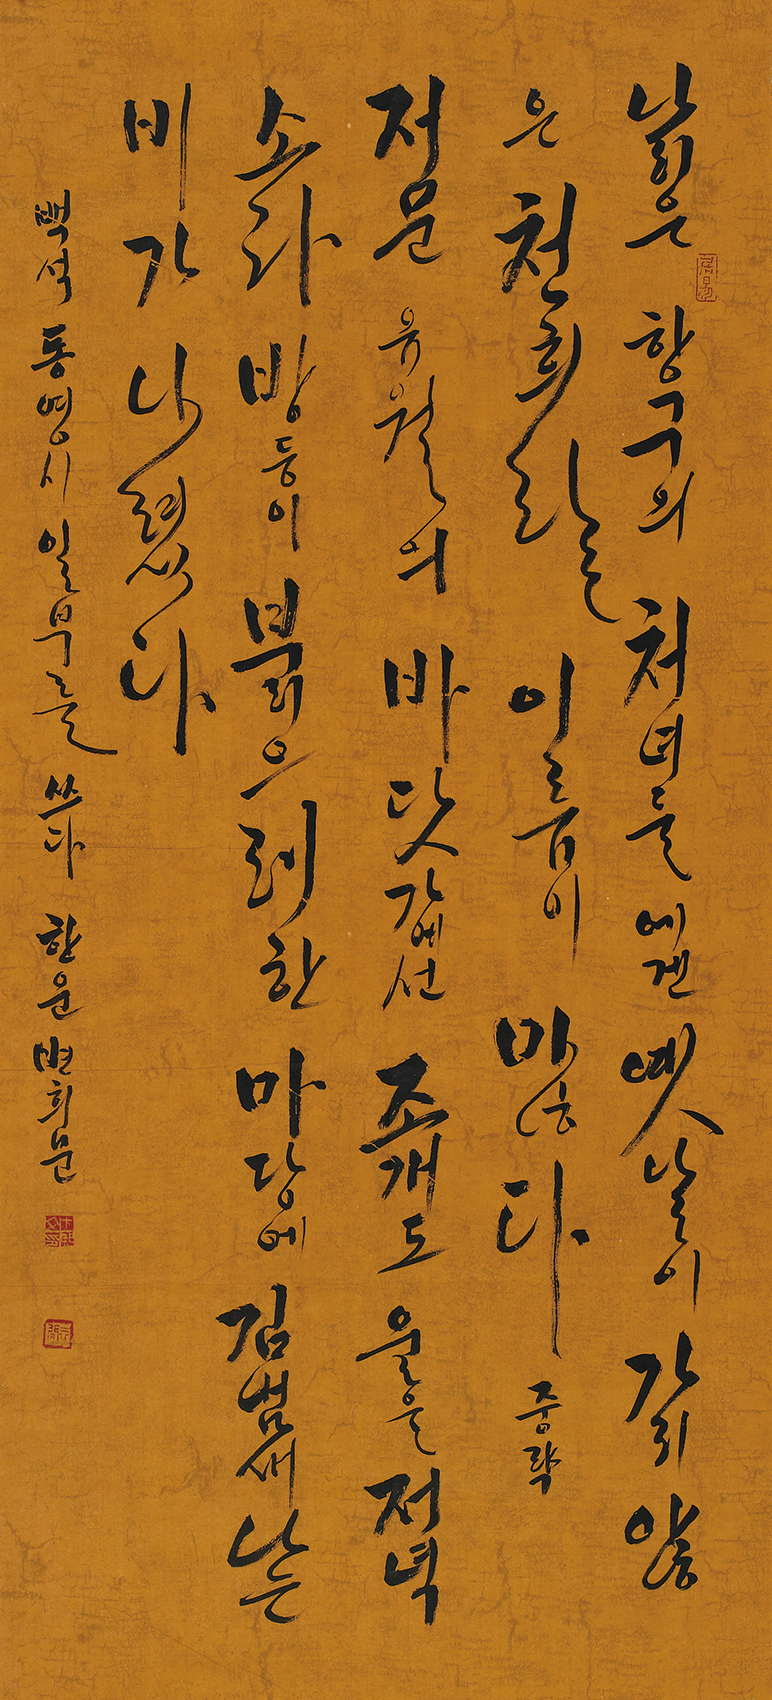 낡은 항구의 처녀들에겐 옛날이 가지 않
은 천희라는 이름이 많다 중략
저문 유월의 바닷가에선 조개도 울을 저녁
소라방등이 붉으레한 마당에 김냄새 나는
비가 나렸다
백석 통영시 일부를 쓰다 한운 변희문